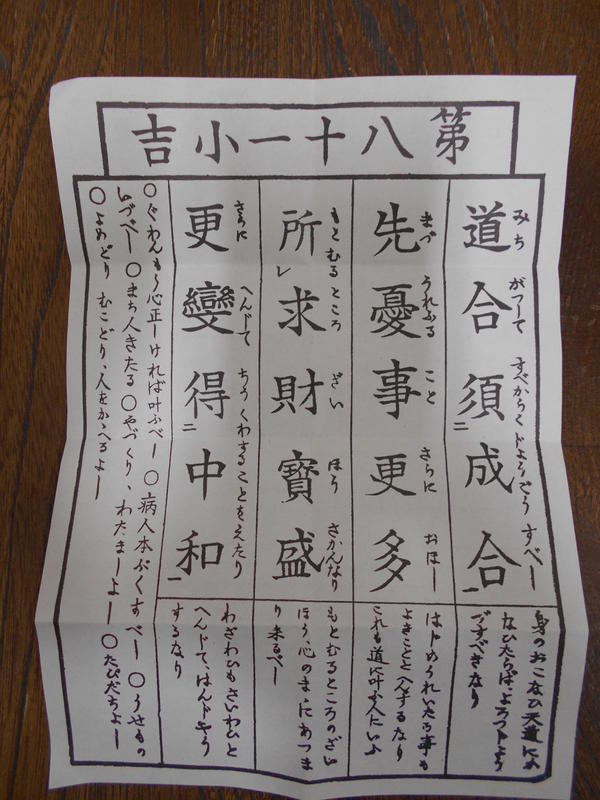 第八十一小吉
道合須成合
みち がつして すべからくじようごう すべし
身のおこなひ天道にか
なひたらば、よろづじよう
ごすべきなり
先憂事更多
まづ うれふる こと さらに おほし
はじめうれいたる事も
よきことゝへんずるなり
これも道に叶ふ人にいふ
所レ求財寳盛
もとむるところ ざい ほう さかんなり
もとむるところのざい
ほう、心のまゝにあつま
り来るべし
更變得二中和一
さらに へんじて ちうくわすることをえたり
わざわひもさいわひと
へんじて、はんじやう
するなり
〇ぐわんもう心正しければ叶ふべし 〇病人本ぷくすべし 〇うせもの
いづべし 〇まち人きたる 〇やづくり、わたましよし 〇たびだちよし
〇よめどり むこどり、人をかゝへるよし